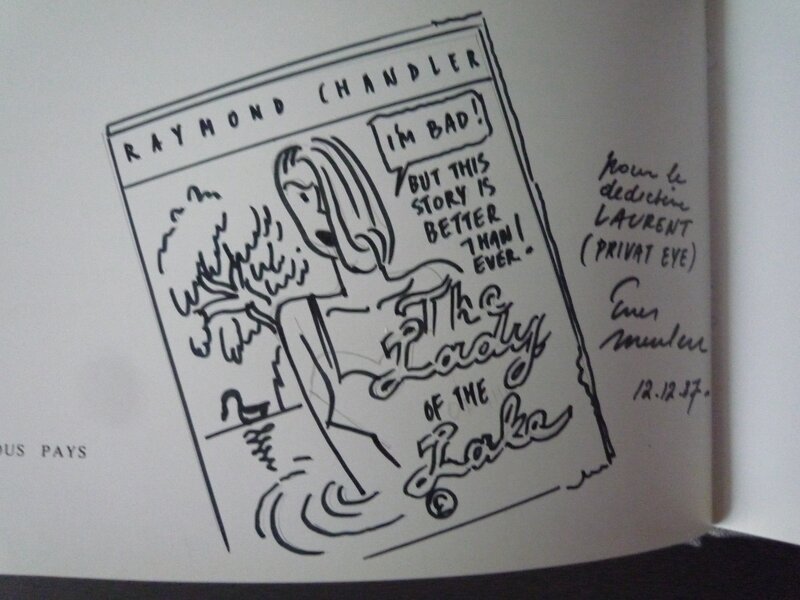 RAYMOND CHANDLER
I'M BAD!
BUT THIS
STORY IS
BETTER
THAN
EVER.
The
Lady
OF THE
Lake
pour le
LAURENT
(PRIVAT EYE)
12.12.87.
OUS PAYS